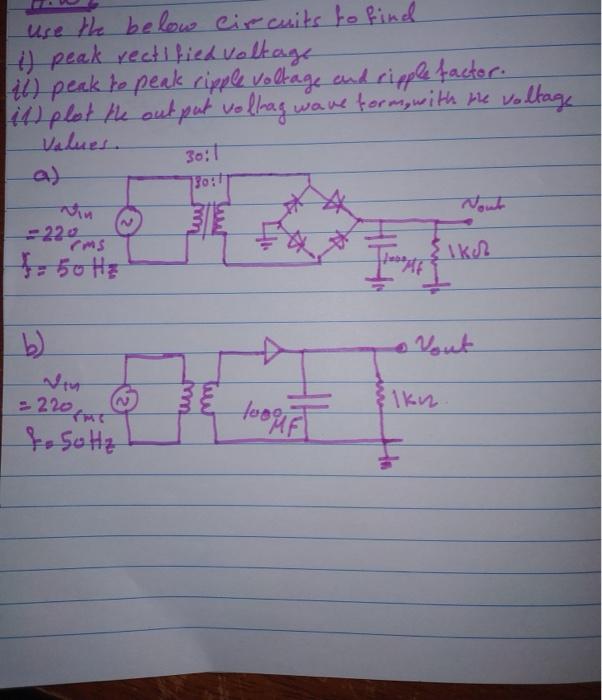 H.W 6
use the below circuits to find
i) peak rectified voltage
ii) peak to peak ripple voltage and ripple factor.
iii) plot the out put voltag wave form, with the voltage
values.
30:1
a)
30:1
Vin
= 220 rms
f = 50 Hz
Vout
1000 Mf
1KΩ
b)
Vin
= 220 rms
f = 50 Hz
1000 MF
Vout
1KΩ